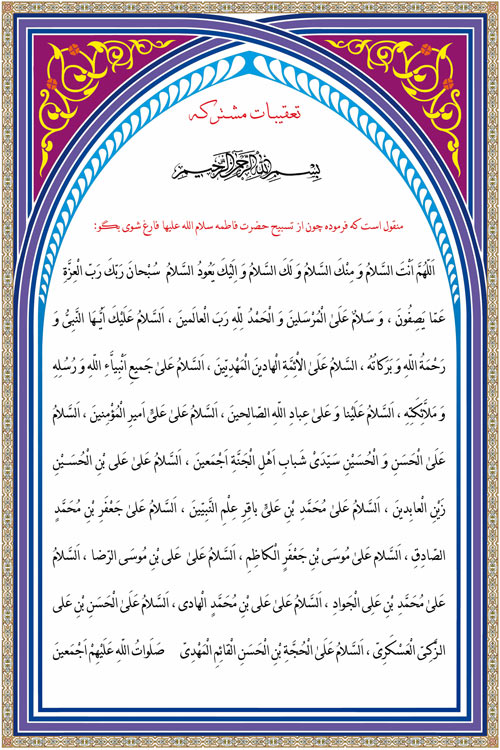 تعقیبات مشترکه
بِسْمِ اللهِ الرَّحْمنِ الرَّحيمِ
منقول است که فرموده چون از تسبیح حضرت فاطمه سلام الله علیها فارغ شوی بگو:
اَللّهُمَّ اَنْتَ السَّلامُ وَ مِنْكَ السَّلامُ وَ لَكَ السَّلامُ وَ اِلَيْكَ يَعُودُ السَّلامُ سُبْحانَ رَبِّكَ رَبِّ الْعِزَّةِ
عَمّا يَصِفُونَ ، وَ سَلامٌ عَلَىٰ الْمُرْسَلينَ وَ الْحَمْدُ لِلّهِ رَبِّ الْعالَمينَ ، اَلسَّلامُ عَلَيْكَ اَيُّهَا النَّبِىُّ وَ
رَحْمَةُ اللّهِ وَ بَرَكاتُهُ ، السَّلامُ عَلَىٰ الْاَئِمَّةِ الْهادينَ الْمَهْدِيّينَ ، اَلسَّلامُ عَلىٰ جَميعِ اَنْبِيآءِ اللّهِ وَ رُسُلِهِ
وَ مَلآئِكَتِهِ ، اَلسَّلامُ عَلَيْنا وَ عَلىٰ عِبادِ اللّهِ الصّالِحينَ ، اَلسَّلامُ عَلىٰ عَلىٍّ اَميرِ الْمُؤْمِنينَ ، اَلسَّلامُ
عَلَىٰ الْحَسَنِ وَ الْحُسَيْنِ سَيِّدَىْ شَبابِ اَهْلِ الْجَنَّةِ اَجْمَعينَ ، اَلسَّلامُ عَلىٰ عَلىِ بْنِ الْحُسَيْنِ
زَيْنِ الْعابِدينَ ، اَلسَّلامُ عَلىٰ مُحَمَّدِ بْنِ عَلىٍّ باقِرِ عِلْمِ النَّبِيّينَ ، اَلسَّلامُ عَلىٰ جَعْفَرِ بْنِ مُحَمَّدٍ
الصّادِقِ ، اَلسَّلام عَلىٰ مُوسَى بْنِ جَعْفَرٍ الْكاظِمِ ، اَلسَّلامُ عَلىٰ عَلىِ بْنِ مُوسَى الرِّضا ، اَلسَّلامُ
عَلىٰ مُحَمَّدِ بْنِ عَلِى الْجَوادِ ، اَلسَّلامُ عَلىٰ عَلىِ بْنِ مُحَمَّدٍ الْهادى ، اَلسَّلامُ عَلَىٰ الْحَسَنِ بْنِ عَلى
الزَّكِىِّ الْعَسْكَرِىِّ ، اَلسَّلامُ عَلَىٰ الْحُجَّةِ بْنِ الْحَسَنِ الْقائِمِ الْمَهْدِىِّ صَلَواتُ اللّهِ عَلَيْهِمْ اَجْمَعينَ